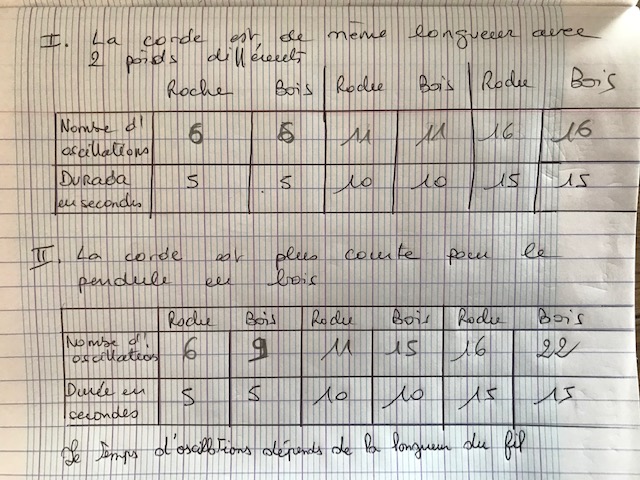 I. La corde est de même longueur avec
2 poids différents
Roche Bois Roche Bois Roche Bois
Nombre d'oscillations 6 6 11 11 16 16
Durada en secondes 5 5 10 10 15 15
II. La corde est plus courte pour le
pendule en bois
Roche Bois Roche Bois Roche Bois
Nombre d'oscillations 6 9 11 15 16 22
Durée en secondes 5 5 10 10 15 15
Le temps d'oscillations dépends de la longueur du fil